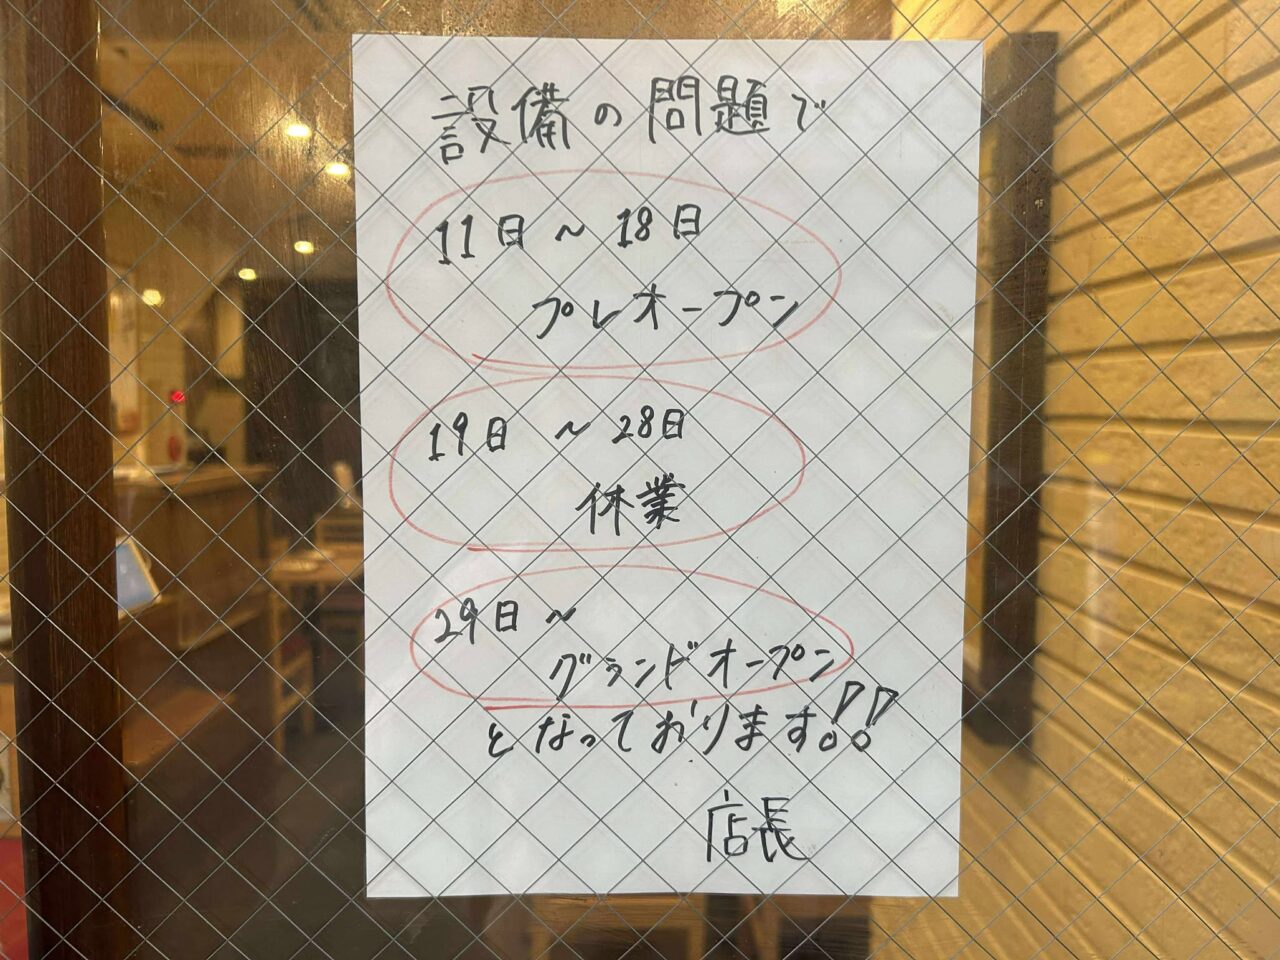 設備の問題で
11日～18日
プレオープン
19日～28日
休業
29日～
グランドオープン
となっております!!
店長